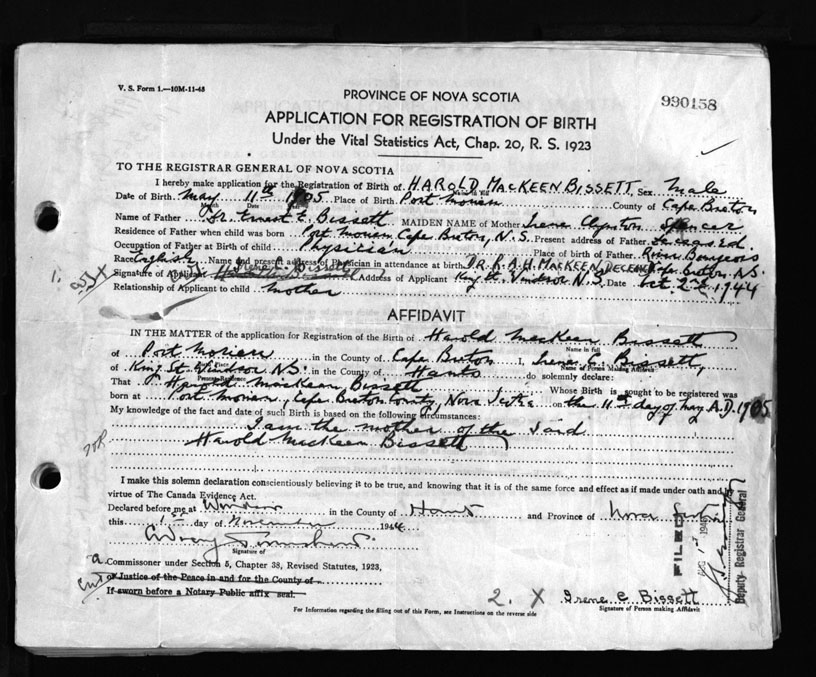 V. S. Form 1.—10M-11-43
990158
PROVINCE OF NOVA SCOTIA
APPLICATION FOR REGISTRATION OF BIRTH
Under the Vital Statistics Act, Chap. 20, R. S. 1923
TO THE REGISTRAR GENERAL OF NOVA SCOTIA
I hereby make application for the Registration of Birth of HAROLD MACKEEN BISSETT, Sex Male
Date of Birth May 11th 1905 Place of Birth Port Morien County of Cape Breton
Month Date
Name of Father Dr. Ernest E. Bissett MAIDEN NAME of Mother Irene Spencer
Residence of Father when child was born Port Morien Cape Breton, N.S. Present address of Father Deceased
Occupation of Father at Birth of child Physician Place of birth of Father River Bourgeois
Race English Name and present address of Physician in attendance at birth DR. R.A.H. MACKEEN, DECEASED Cape Breton, N.S.
Signature of Applicant Irene C. Bissett Address of Applicant King St. Windsor N.S. Date Oct. 2nd, 1944
Relationship of Applicant to child Mother
AFFIDAVIT
IN THE MATTER of the application for Registration of the Birth of Harold MacKeen Bissett
Name in full
of Port Morien in the County of Cape Breton I, Irene C. Bissett,
Name of Person Making Affidavit
of King St. Windsor N.S. in the County of Hants do solemnly declare:
Present Residence
That Harold MacKeen Bissett Whose Birth is sought to be registered was
born at Port Morien, Cape Breton County, Nova Scotia on the 11th day of May A.D. 1905
My knowledge of the fact and date of such Birth is based on the following circumstances:
I am the mother of the said
Harold MacKeen Bissett
I make this solemn declaration conscientiously believing it to be true, and knowing that it is of the same force and effect as if made under oath and by
virtue of The Canada Evidence Act.
Declared before me at Windsor in the County of Hants and Province of Nova Scotia
this 1st day of November 1944
Signature of
A Commissioner under Section 5, Chapter 38, Revised Statutes, 1923,
or Justice of the Peace in and for the County of
If sworn before a Notary Public affix seal.
2. X Irene C Bissett
For Information regarding the filling out of this Form, see Instructions on the reverse side
Signature of Person making Affidavit
FILED
Deputy Registrar General